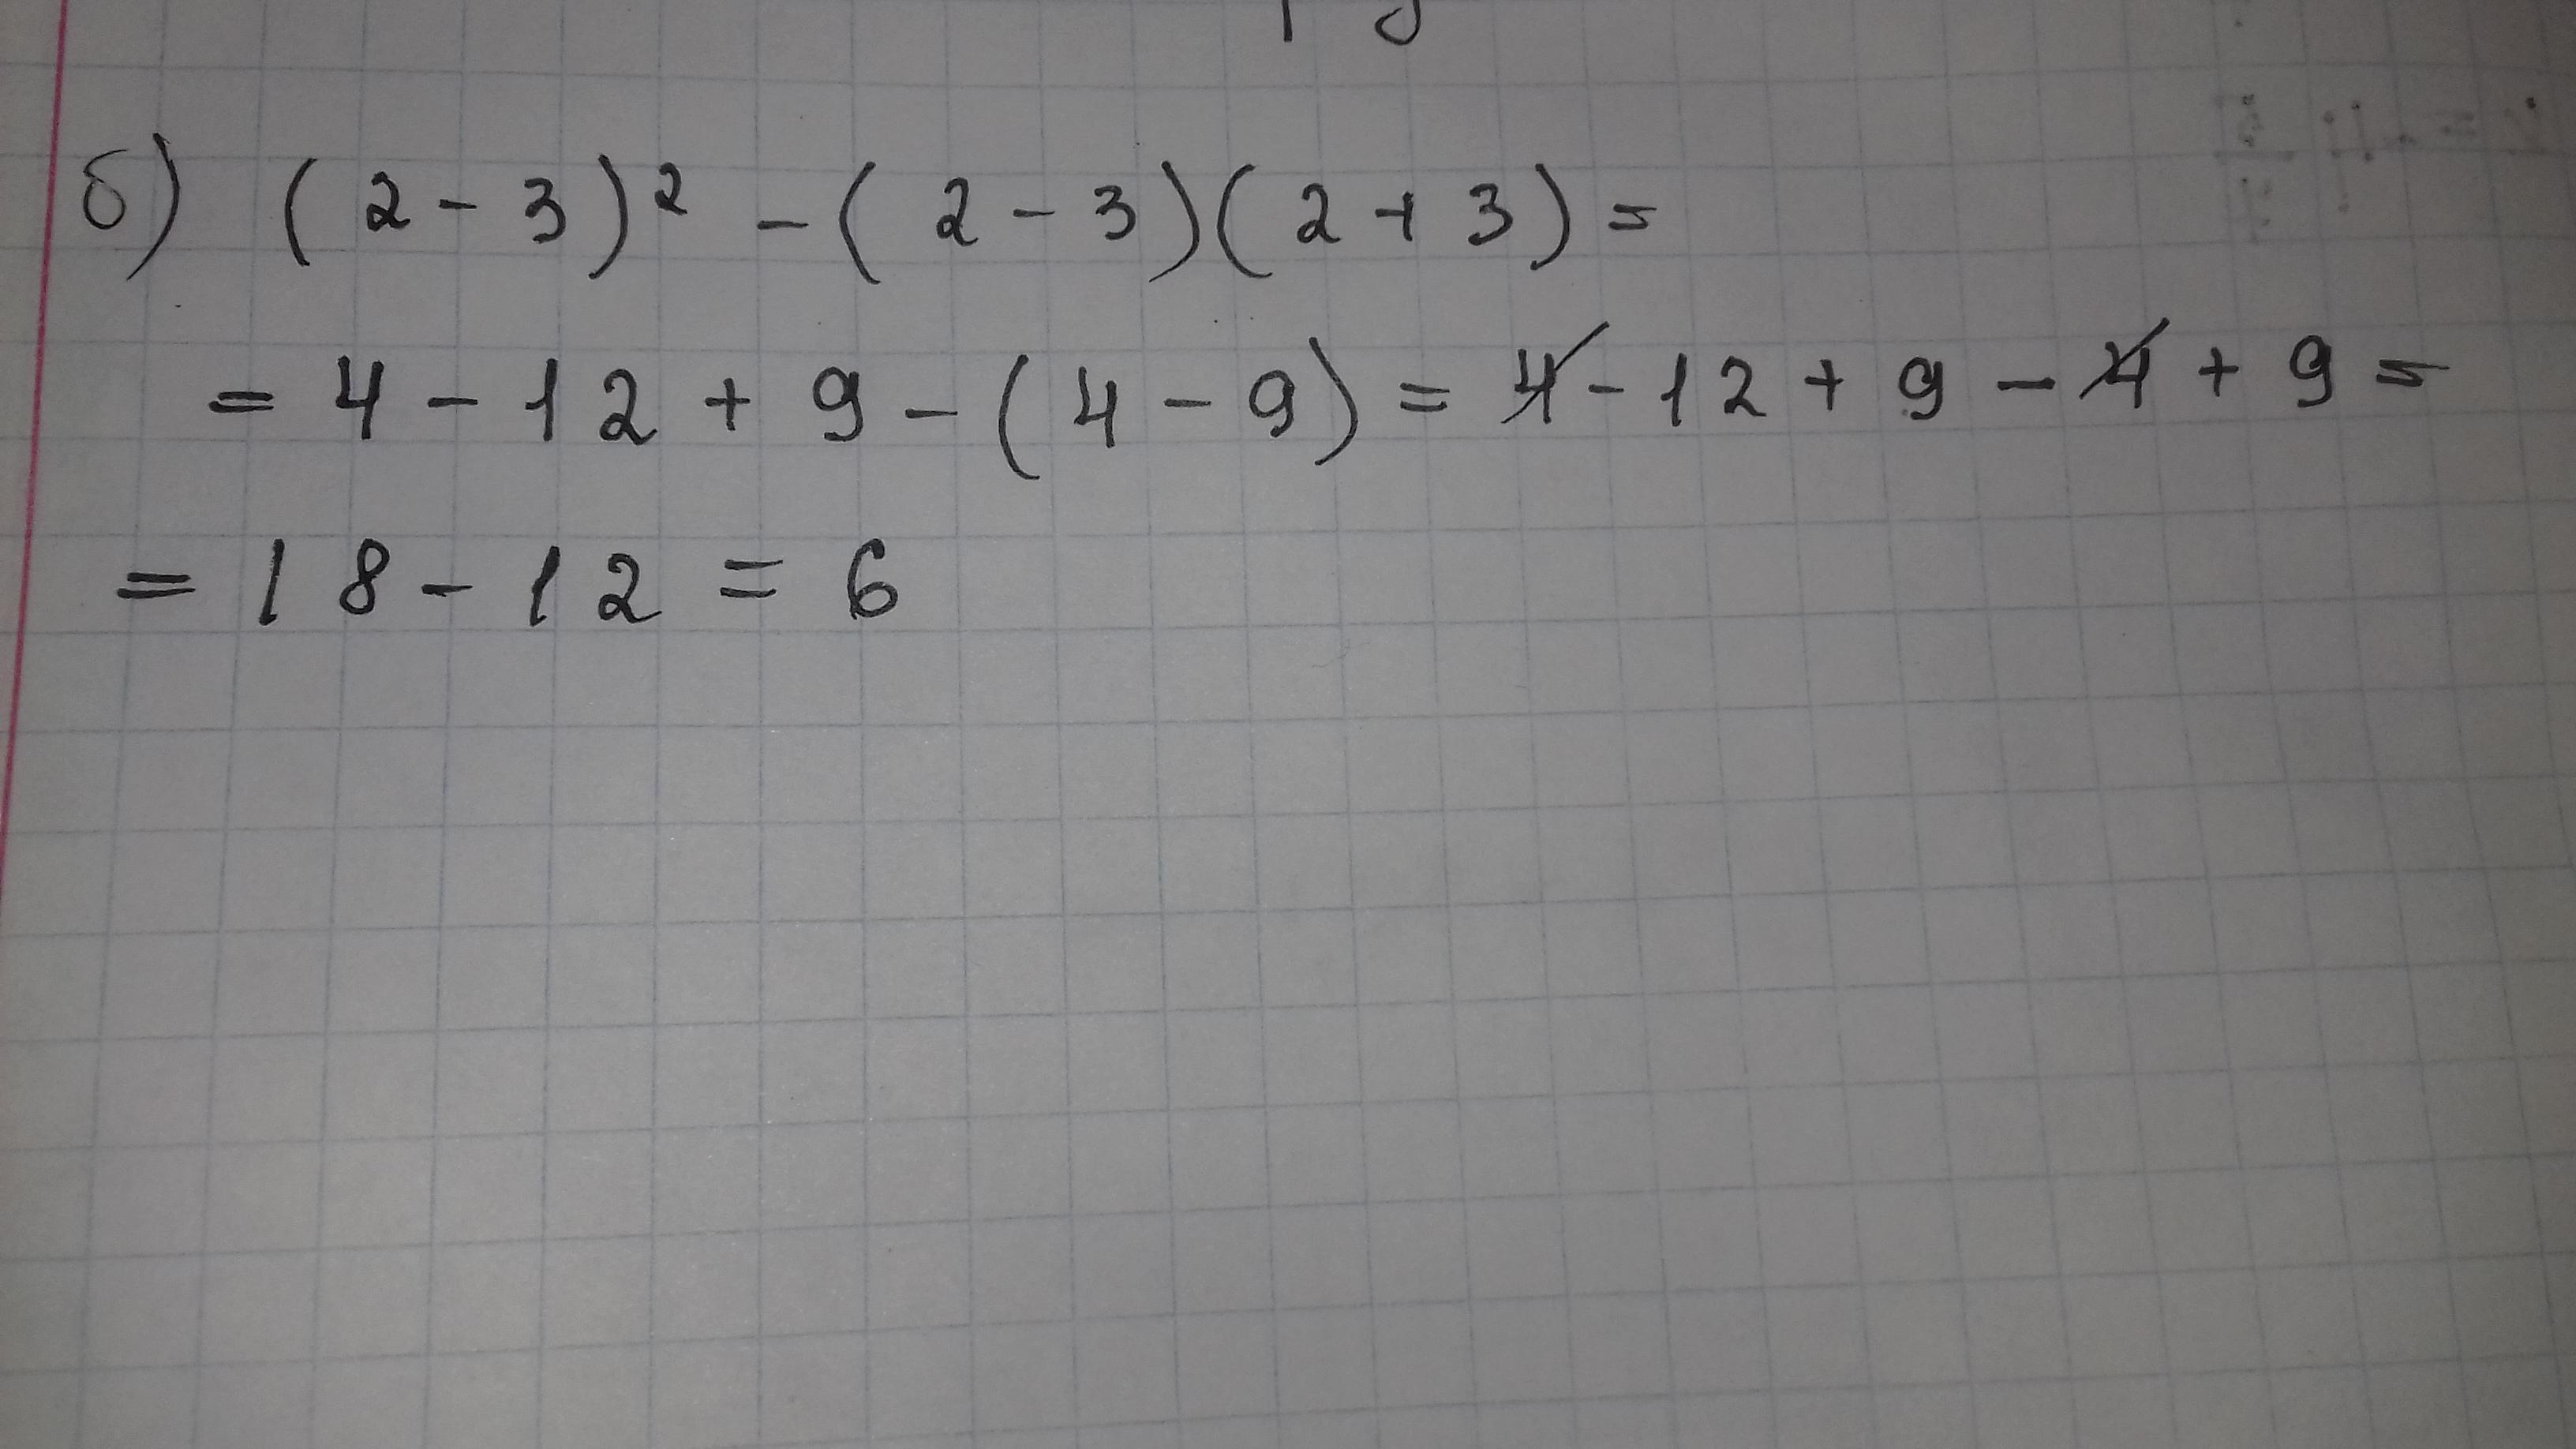 б) (2-3)² - (2-3)(2+3)=
= 4 - 12 + 9 - (4 - 9) = 4 - 12 + 9 - 4 + 9 =
= 18 - 12 = 6